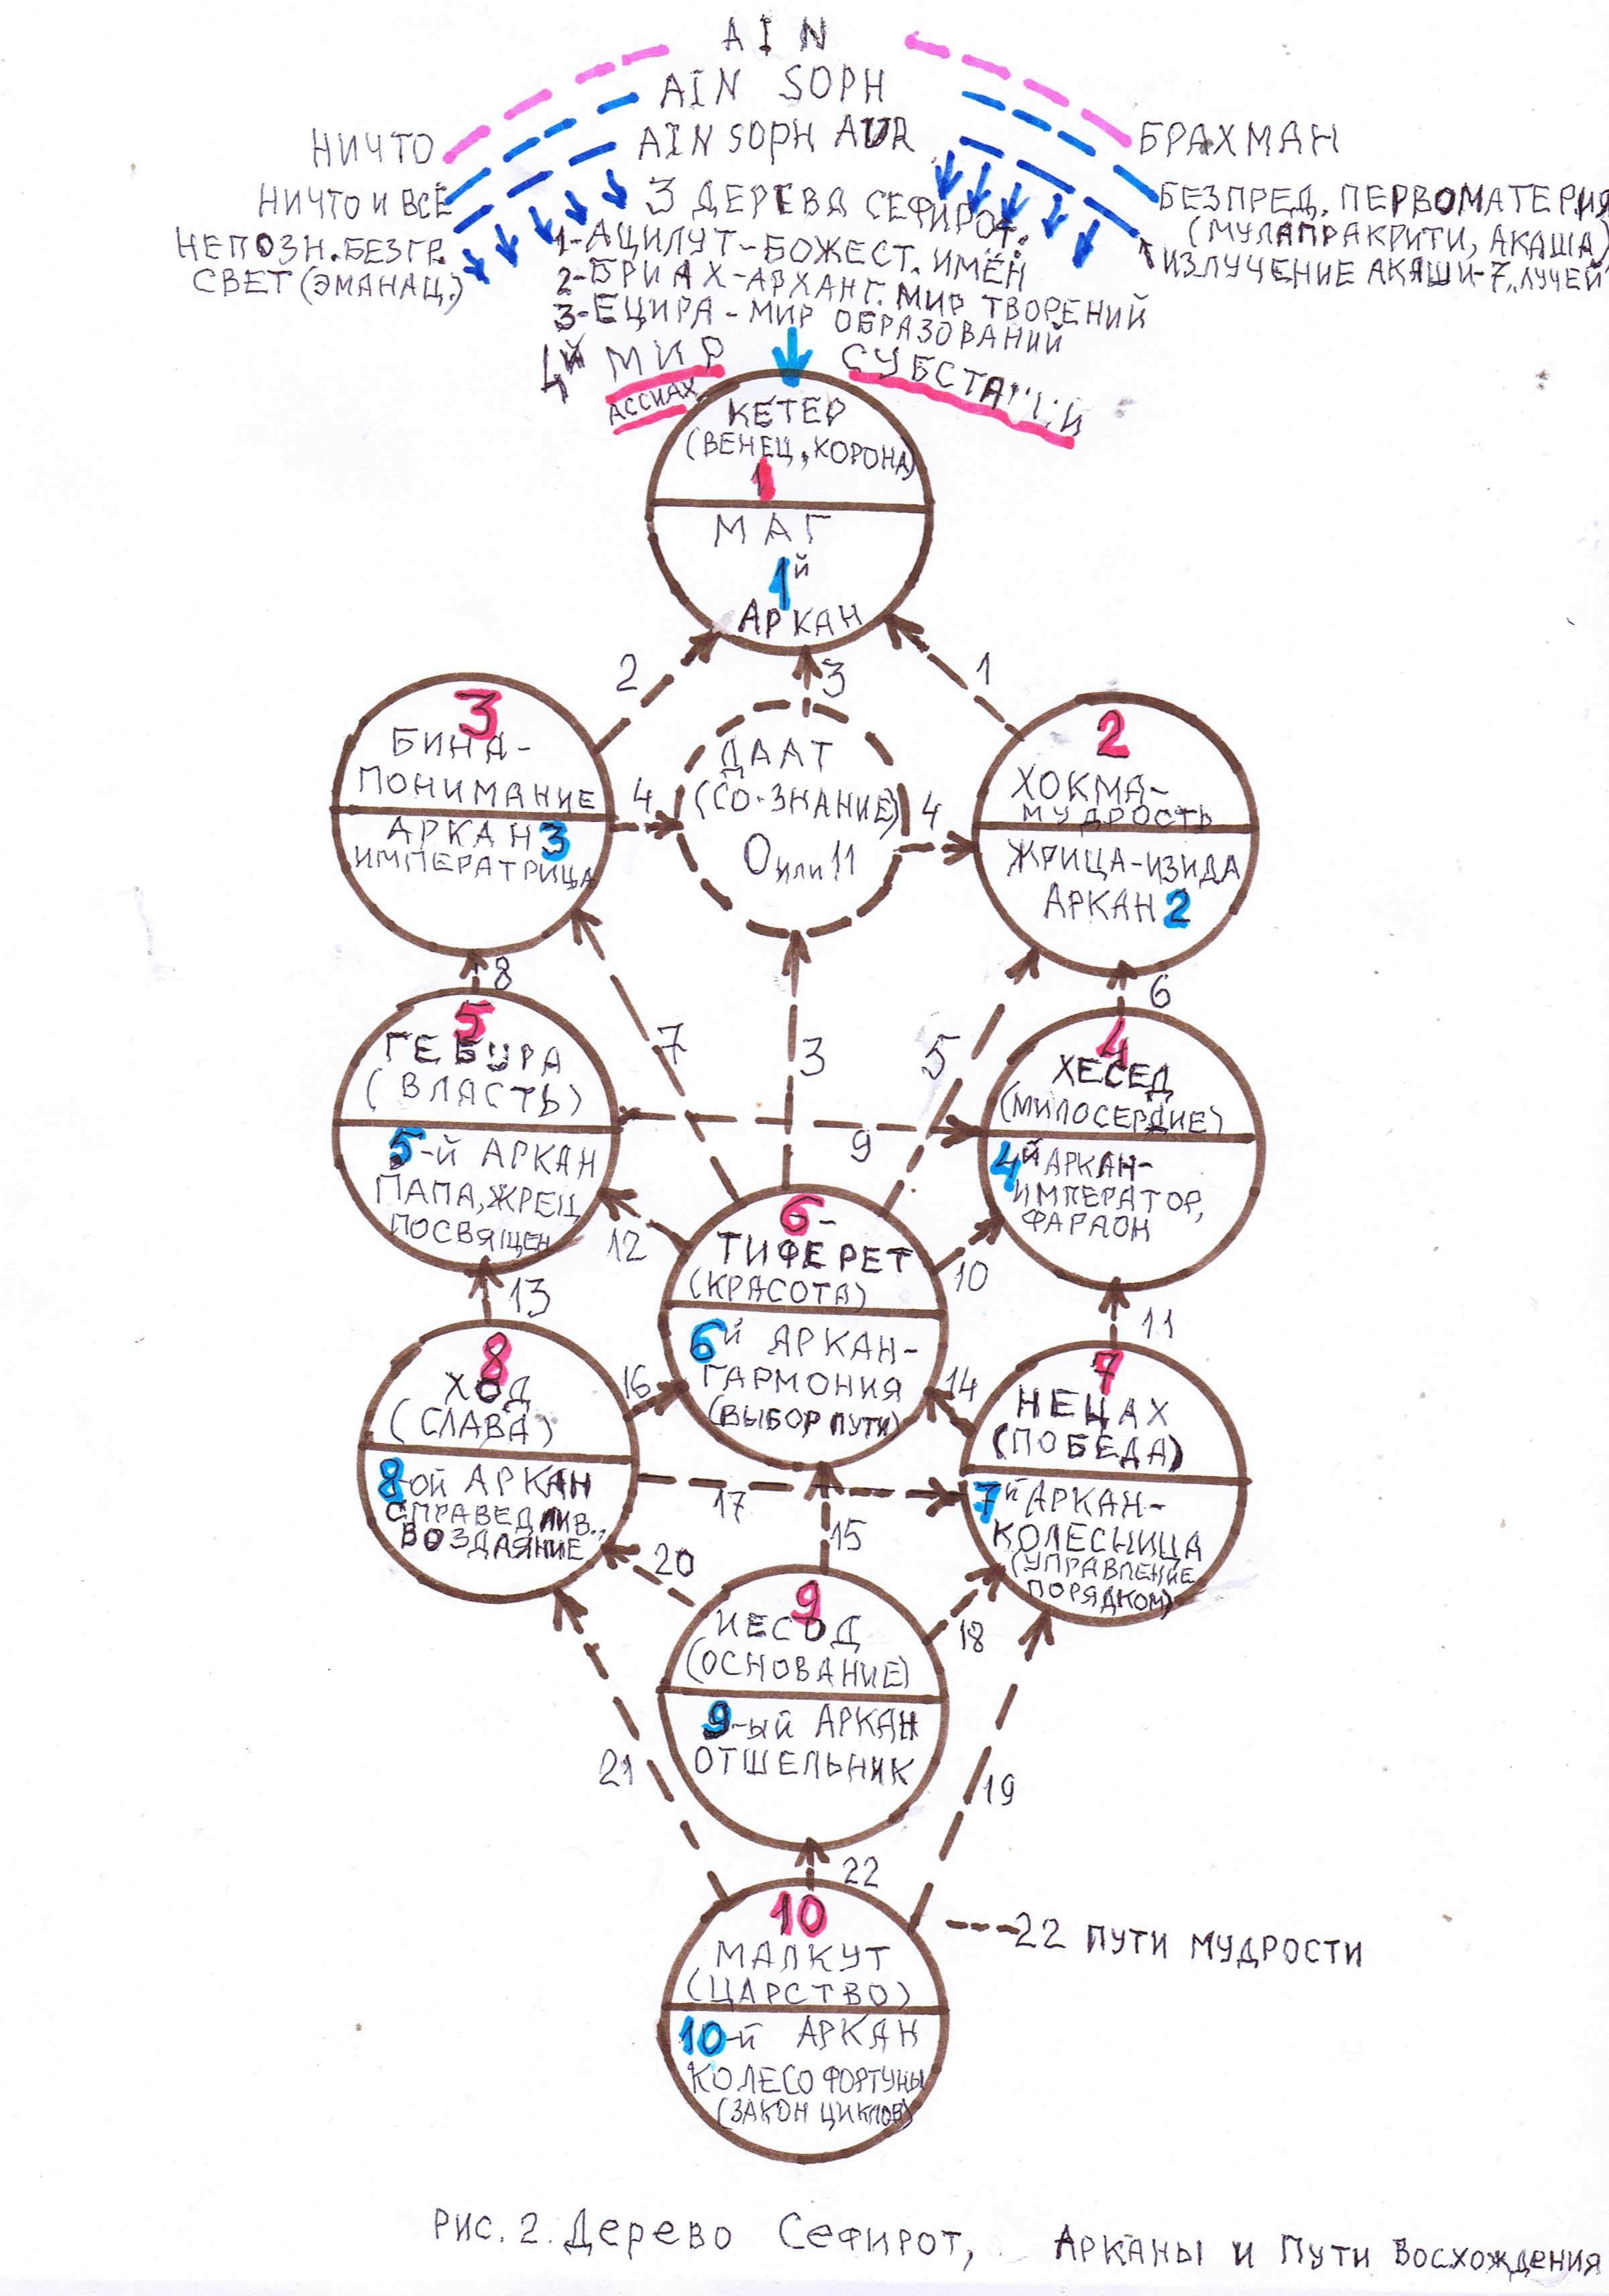 AIN
AIN SOPH
AIN SOPH AUR
НИЧТО
БРАХМАН
НИЧТО И ВСЁ
БЕЗПРЕД. ПЕРВОМАТЕРИЯ
НЕПОЗН. БЕЗГР.
(МУЛАПРАКРИТИ, АКАША)
СВЕТ (ЭМАНАЦ.)
ИЗЛУЧЕНИЕ АКАШИ-7 „ЛУЧЕЙ"
3 ДЕРЕВА СЕФИРОТ:
1-АЦИЛУТ-БОЖЕСТ. ИМЁН
2-БРИАХ-АРХАНГ. МИР ТВОРЕНИЙ
3-ЕЦИРА-МИР ОБРАЗОВАНИЙ
4й МИР СУБСТАНЦИЙ
АССИАХ
КЕТЕР
(ВЕНЕЦ, КОРОНА)
1
МАГ
1й
АРКАН
2
3
1
3
БИНА-
ПОНИМАНИЕ
АРКАН 3
ИМПЕРАТРИЦА
4
ДААТ
(СО-ЗНАНИЕ)
0 или 11
4
2
ХОКМА-
МУДРОСТЬ
ЖРИЦА-ИЗИДА
АРКАН 2
8
7
3
5
6
5
ГЕБУРА
(ВЛАСТЬ)
5-й АРКАН
ПАПА, ЖРЕЦ
ПОСВЯЩЕН
9
4
ХЕСЕД
(МИЛОСЕРДИЕ)
4й АРКАН-
ИМПЕРАТОР,
ФАРАОН
12
10
13
11
6-
ТИФЕРЕТ
(КРАСОТА)
6й АРКАН-
ГАРМОНИЯ
(ВЫБОР ПУТИ)
16
14
8
ХОД
(СЛАВА)
8-ой АРКАН
СПРАВЕДЛИВ.,
ВОЗДАЯНИЕ
17
15
7
НЕЦАХ
(ПОБЕДА)
7й АРКАН-
КОЛЕСНИЦА
(УПРАВЛЕНИЕ
ПОРЯДКОМ)
20
18
9
ИЕСОД
(ОСНОВАНИЕ)
9-ый АРКАН
ОТШЕЛЬНИК
21
19
22
10
МАЛКУТ
(ЦАРСТВО)
10-й АРКАН
КОЛЕСО ФОРТУНЫ
(ЗАКОН ЦИКЛОВ)
22 ПУТИ МУДРОСТИ
РИС. 2. Дерево Сефирот, Арканы и Пути Восхождения